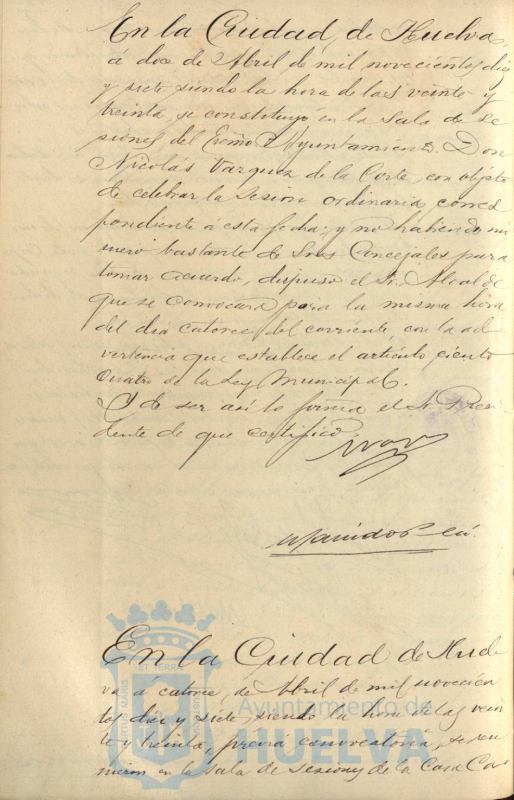 En la Ciudad de Huelva,
á doce de Abril de mil novecientos diez
y siete siendo la hora de las veinte y
treinta, se constituyó en la Sala de se
siones del Excmo Ayuntamiento Don
Nicolás Vazquez de la Corte, con objeto
de celebrar la sesion ordinaria corres
pondiente á esta fecha; y no habiendo nú
mero bastante de Sres Concejales para
tomar acuerdo, dispuso el Sr. Alcalde
que se convocara para la misma hora
del dia catorce del corriente, con la ad
vertencia que establece el artículo ciento
cuatro de la Ley Municipal.
Y de ser así lo firma el Sr. Presi
dente de que certifico.
En la Ciudad de Huel
va á catorce de Abril de mil novecien
tos diez y siete, siendo la hora de las vein
te y treinta, previa convocatoria, se reu
nieron en la Sala de sesiones de la Casa Con
Ayuntamiento de
HUELVA